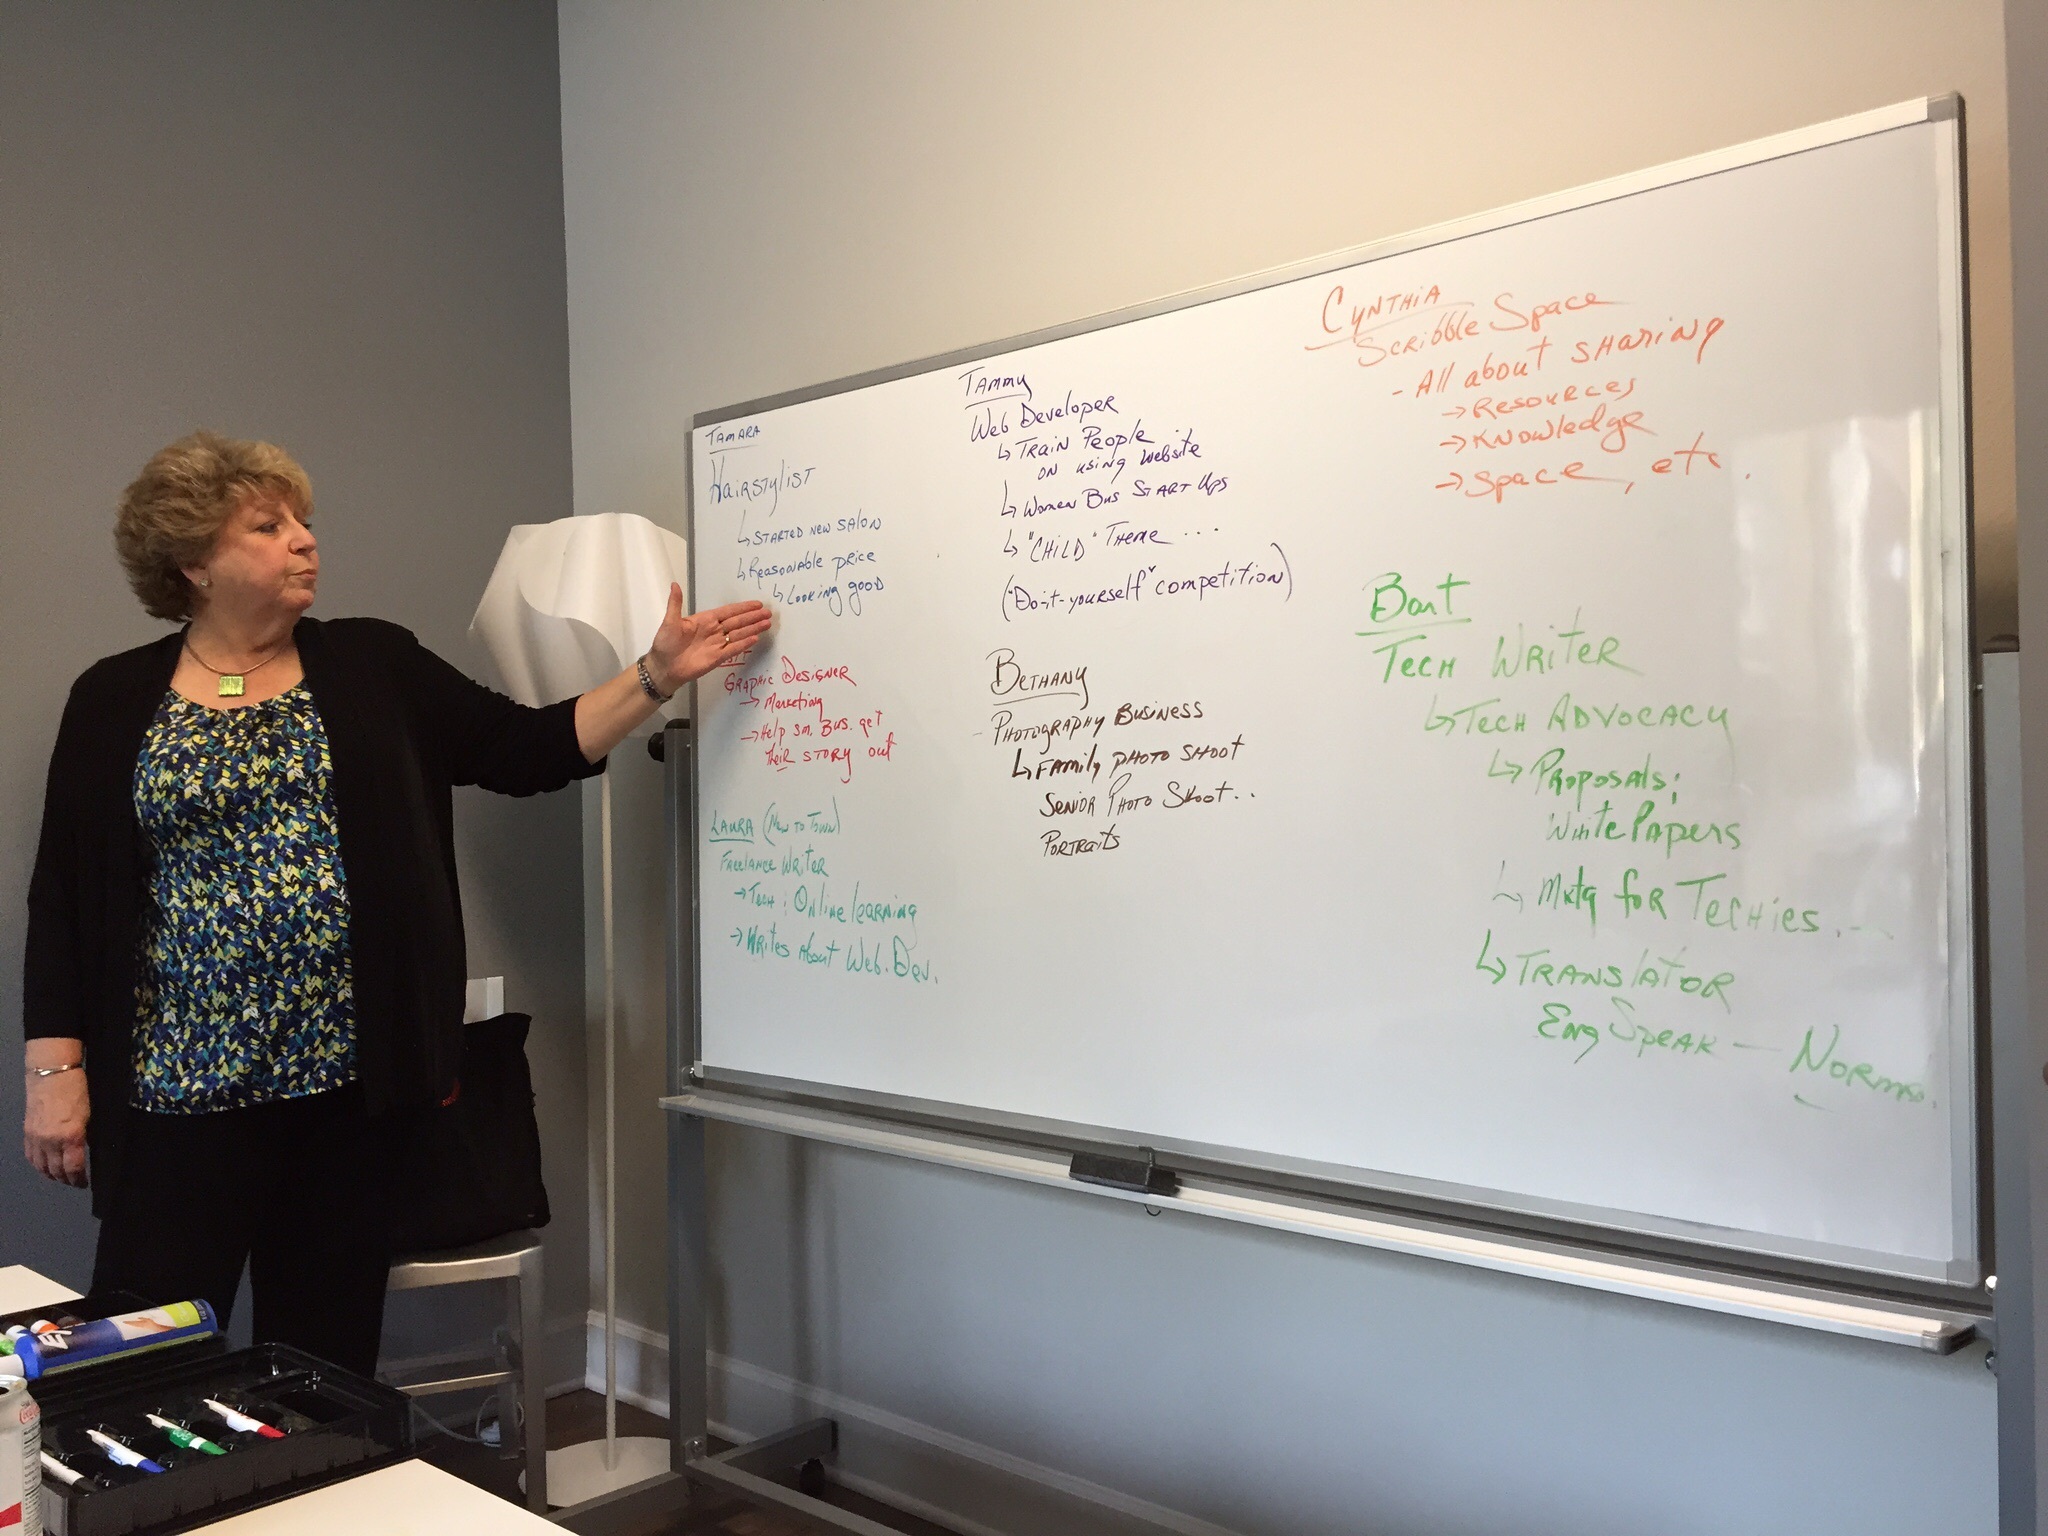 TAMARA
HAIRSTYLIST
↳ STARTED NEW SALON
↳ REASONABLE PRICE
↳ LOOKING GOOD
GRAPHIC DESIGNER
→ Marketing
→ Help SM. BUS. get
their STORY out
LAURA (NEW TO TOWN)
FREELANCE WRITER
→ TECH; Online learning
→ WRITES About Web. Dev.
TAMMY
Web Developer
↳ TRAIN People
ON using Website
↳ WOMEN BUS START UPS
↳ "CHILD" THEME ...
("Do-it-yourself" competition)
BETHANY
PHOTOGRAPHY BUSINESS
↳ FAMILY PHOTO SHOOT
SENIOR PHOTO SHOOT..
PORTRAITS
CYNTHIA
SCRIBBLE SPACE
- All about SHARING
→ RESOURCES
→ KNOWLEDGE
→ SPACE, etc.
Bart
TECH WRITER
↳ TECH ADVOCACY
↳ PROPOSALS;
WhitePapers
↳ Mktg for TECHIES.
↳ TRANSLATOR
Eng SPEAK —